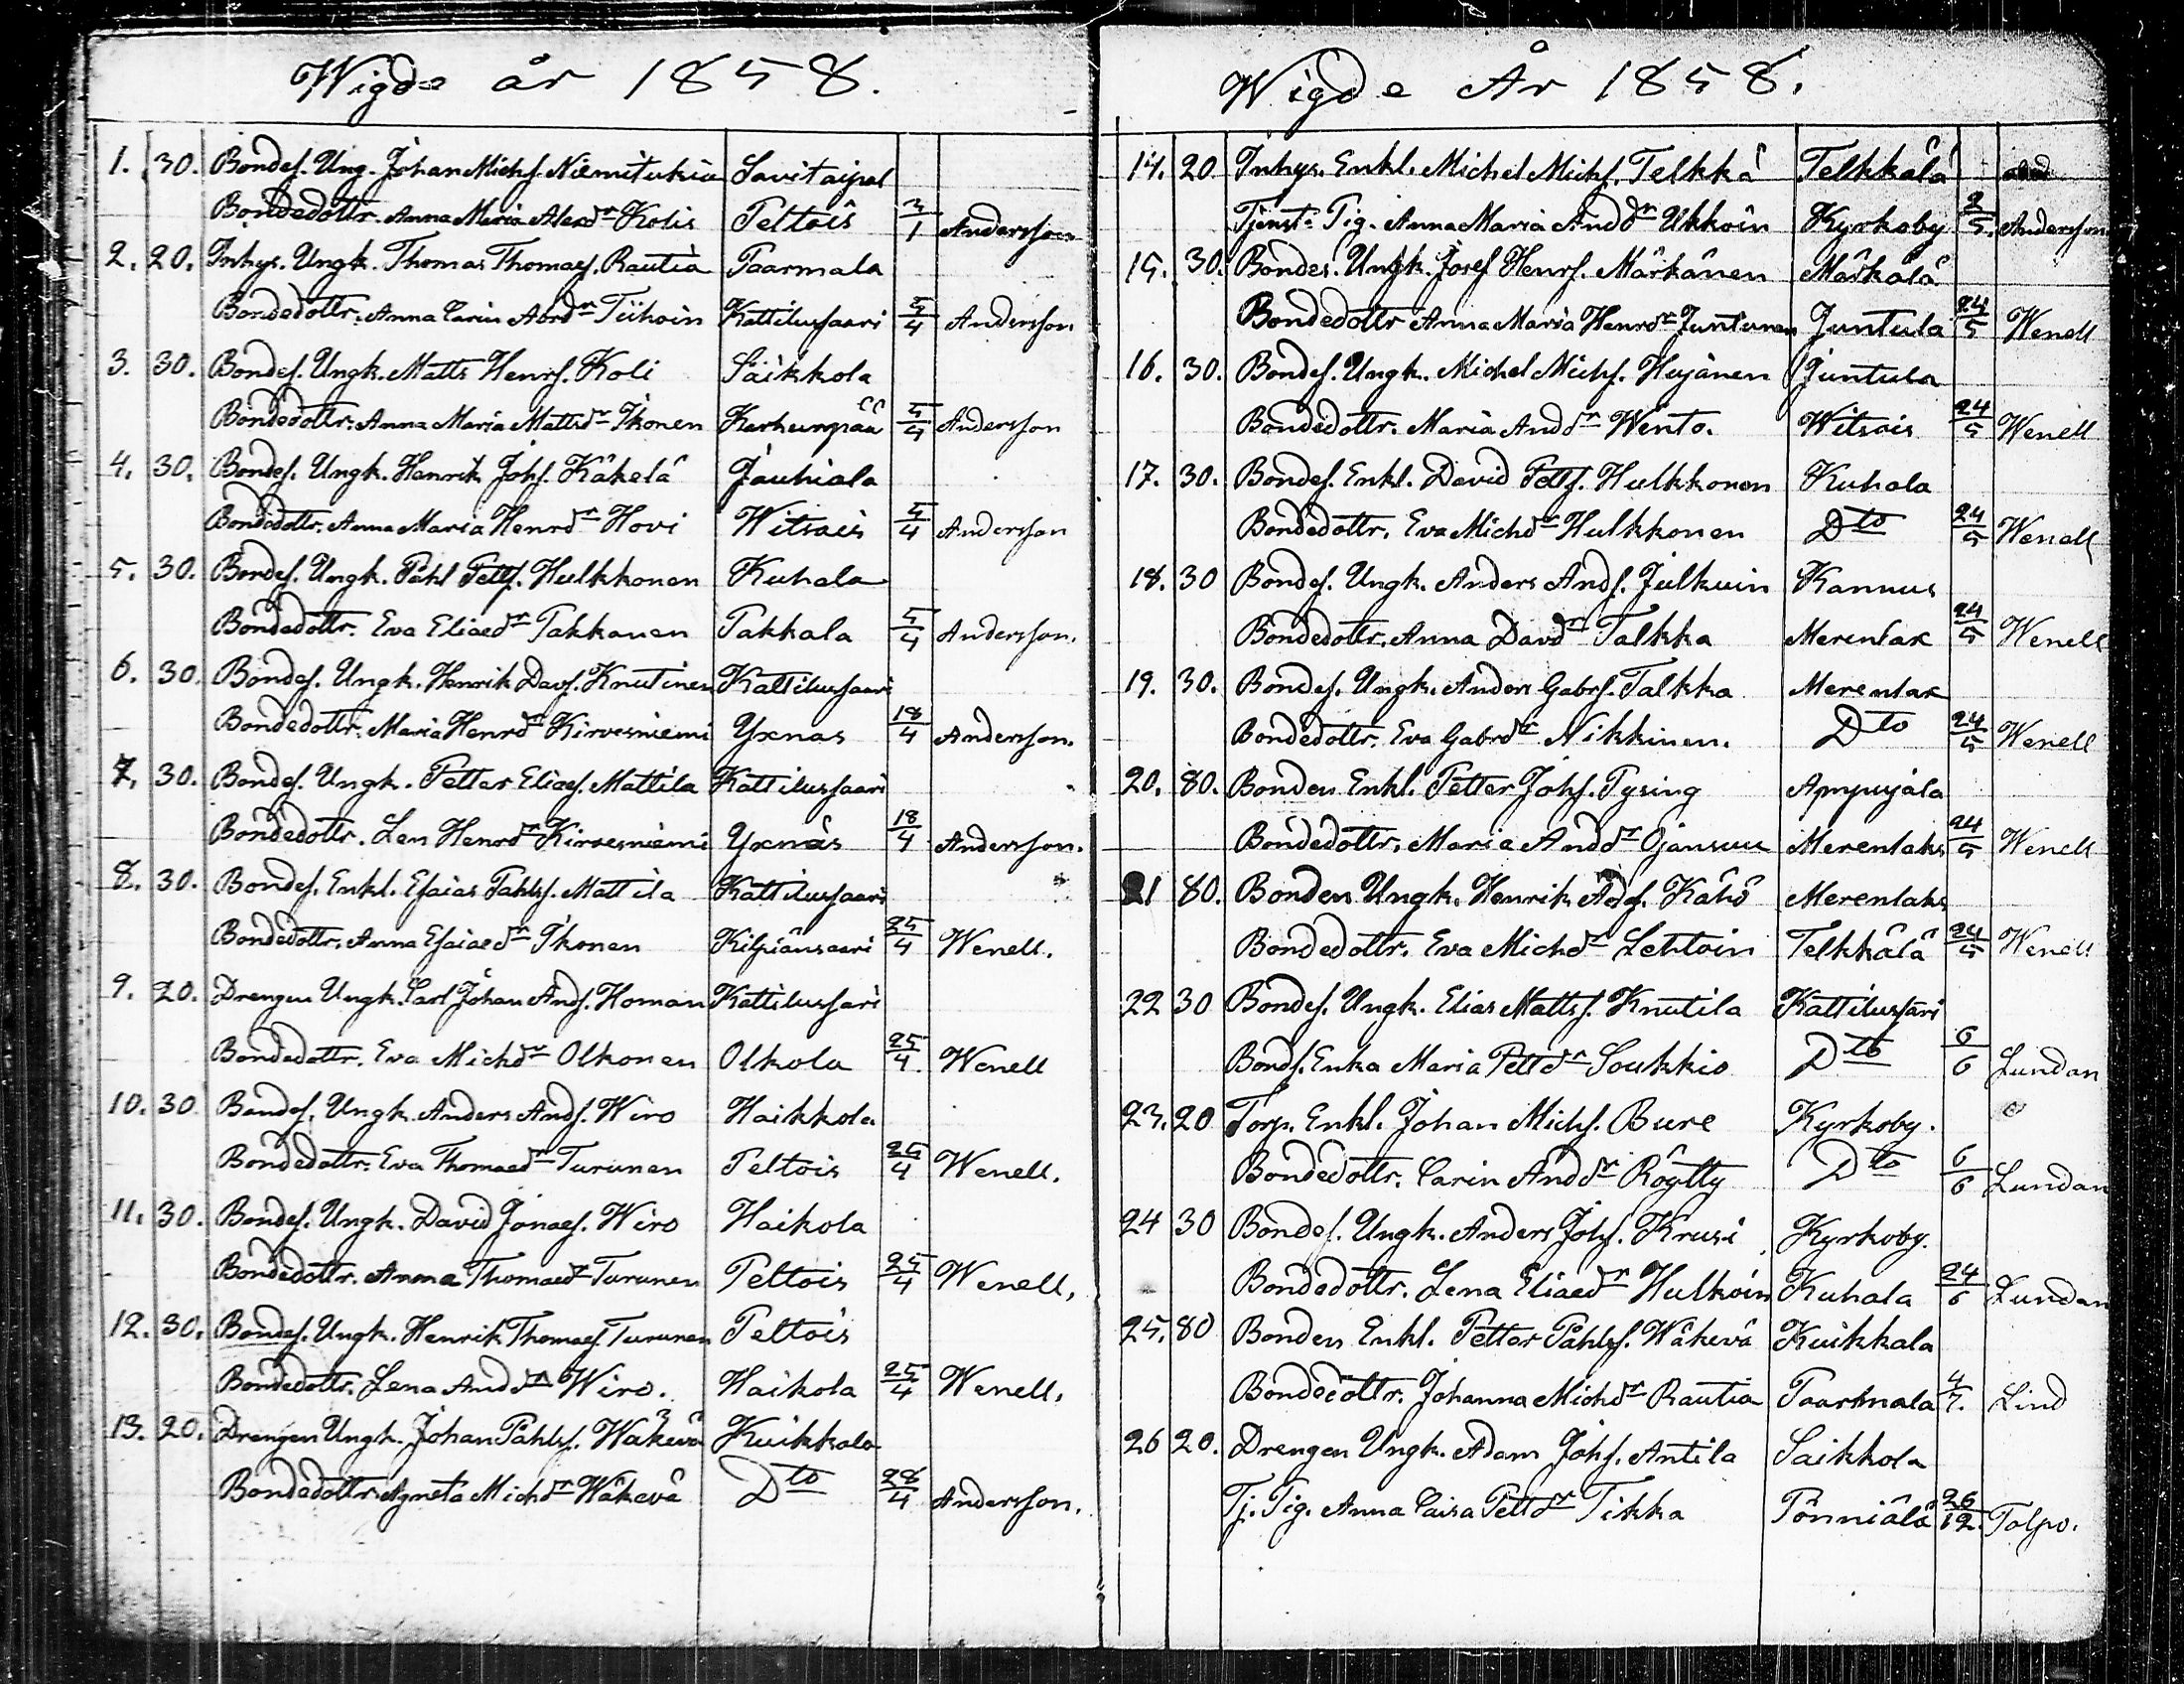 Wigde år 1858.
1. 30. Bondes. Ung. Johan Michs. Niemitukia Savitaipal
Bondedottr. Anna Maria Alexdr Kolis Peltois 3/1 Andersson
2. 20. Inhys. Ungk. Thomas Thomaes. Rautia Paarmala
Bondedottr. Anna Carin Abrdr Tiihoin Kattilussaari 5/4 Andersson
3. 30. Bondes. Ungk. Matts Henrs. Koli Säikkola
Bondedottr. Anna Maria Mattsdr Ikonen Karhunpää 5/4 Andersson
4. 30. Bondes. Ungk. Henrik Johs. Käkelä Jauhiala
Bondedottr. Anna Maria Henrdr Hovi Witsais 5/4 Andersson
5. 30. Bondes. Ungk. Påhl Petts. Hulkkonen Kuhala
Bondedottr. Eva Eliaedr Pakkanen Pakkala 5/4 Andersson.
6. 30. Bondes. Ungk. Henrik Davs. Knutinen Kattilussaari
Bondedottr. Maria Henrdr Kirvesniemi Yxnas 18/4 Andersson.
7. 30. Bondes. Ungk. Petter Eliaes. Mattila Kattilussaari
Bondedottr. Len Henrdr Kirvesniemi Yxnäs 18/4 Andersson.
8. 30. Bondes. Enkl. Esaias Påhls. Mattila Kattilussaari
Bondedottr. Anna Esaiaedr Ikonen Kilpiänsaari 25/4 Wenell.
9. 20. Drengen Ungk. Carl Johan Ands. Homan Kattilussari
Bondedottr. Eva Michdr Olkonen Olkola 25/4. Wenell
10. 30 Bondes. Ungk. Anders Ands. Wiro Haikkola
Bondedottr. Eva Thomaedr Turunen Peltois 25/4 Wenell.
11. 30. Bondes. Ungk. David Jonaes. Wiro Haikola
Bondedottr. Anna Thomaedr Turunen Peltois 25/4 Wenell,
12. 30. Bondes. Ungk. Henrik Thomaes. Turunen Peltois
Bondedottr. Lena Anddr Wiro. Haikola 25/4 Wenell,
13. 20. Drengen Ungk. Johan Påhls. Wäkevä Kuikkala
Bondedottr. Agneta Michdr Wäkevä Dto 28/4 Andersson.
Wigde År 1858.
14. 20 Inhys. Enkl. Michel Michs. Telkkä Telkkälä
Tjenst. Pig. Anna Maria Anddr Ukkoin Kyrkoby 2/5. Andersson
15. 30. Bondes. Ungk. Josef Henrs. Märkänen Märkälä
Bondedottr Anna Maria Henrdr Juntunen Juntula 24/5 Wenell
16. 30. Bondes. Ungk. Michel Michs. Hujanen Juntula
Bondedottr. Maria Anddr Wento. Witsais 24/5 Wenell
17. 30. Bondes. Enkl. David Petts. Hulkkonen Kuhala
Bondedottr. Eva Michdr Hulkkonen Dto 24/5 Wenell
18. 30 Bondes. Ungk. Anders Ands. Julkuin Kannus
Bondedottr. Anna Davdr Talkka Merenlax 24/5 Wenell
19. 30. Bondes. Ungk. Anders Gabrs. Talkka Merenlax
Bondedottr. Eva Gabrdr Nikkinen. Dto 24/5 Wenell
20. 80. Bonden Enkl. Petter Johs. Pysing Apnpujala
Bondedottr. Maria Anddr Ojansuu Merenlaks 24/5 Wenell
21 80. Bonden Ungk. Henrik Ads. Kähö Merenlaks
Bondedottr. Eva Michdr Lehtoin Telkkälä 24/5 Wenell
22 30 Bondes. Ungk. Elias Mattss. Knutila Kattilussari
Bonds. Enka Maria Pettdr Soukkio Dto 6/6 Lundan
23. 20 Torp. Enkl. Johan Michs. Bure Kyrkoby.
Bondedottr. Carin Anddr Röytty Dto 6/6 Lundan
24 30 Bondes. Ungk. Anders Johs. Krusi Kyrkoby.
Bondedottr. Lena Eliaedr Hulkoin Kuhala 24/6 Lundan
25. 80 Bonden Enkl. Petter Påhls. Wäkevä Kuikkala
Bondedottr. Johanna Michdr Rautia Paarmala 4/7. Lind
26 20. Drengen Ungk. Adam Johs. Antila Saikkola
Tj. Pig. Anna Caisa Pettdr Tikka Pönniälä 26/12. Tolpo.